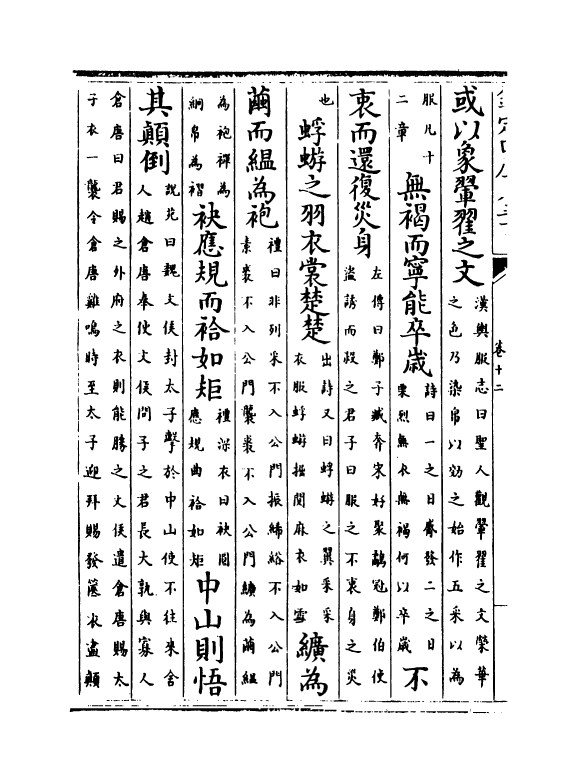 卷十二
或以象翬翟之文漢輿服志曰聖人觀翬翟之文榮華之色乃染帛以効之始作五采以為
服凡十二章無褐而寧能卒歳詩曰一之日觱發二之日栗烈無衣無褐何以卒歳不
衷而還復災身左傳曰鄭子臧奔宋好聚鷸冠鄭伯使盜誘而殺之君子曰服之不衷身之災
也蜉蝣之羽衣裳楚楚出詩又曰蜉蝣之翼采采衣服蜉蝣掘閱麻衣如雪纊為
繭而緼為袍禮曰非列采不入公門振絺綌不入公門素裘不入公門襲裘不入公門纊為繭緼
為袍襌為絅帛為褶袂應規而袷如矩禮深衣曰袂圓應規曲袷如矩中山則悟
其顛倒說苑曰魏文侯封太子擊於中山使不往來舍人趙倉唐奉使文侯問子之君長大孰與寡人
倉唐曰君賜之外府之衣則能勝之文侯遣倉唐賜太子衣一襲令倉唐雞鳴時至太子迎拜賜發篋衣盡顛